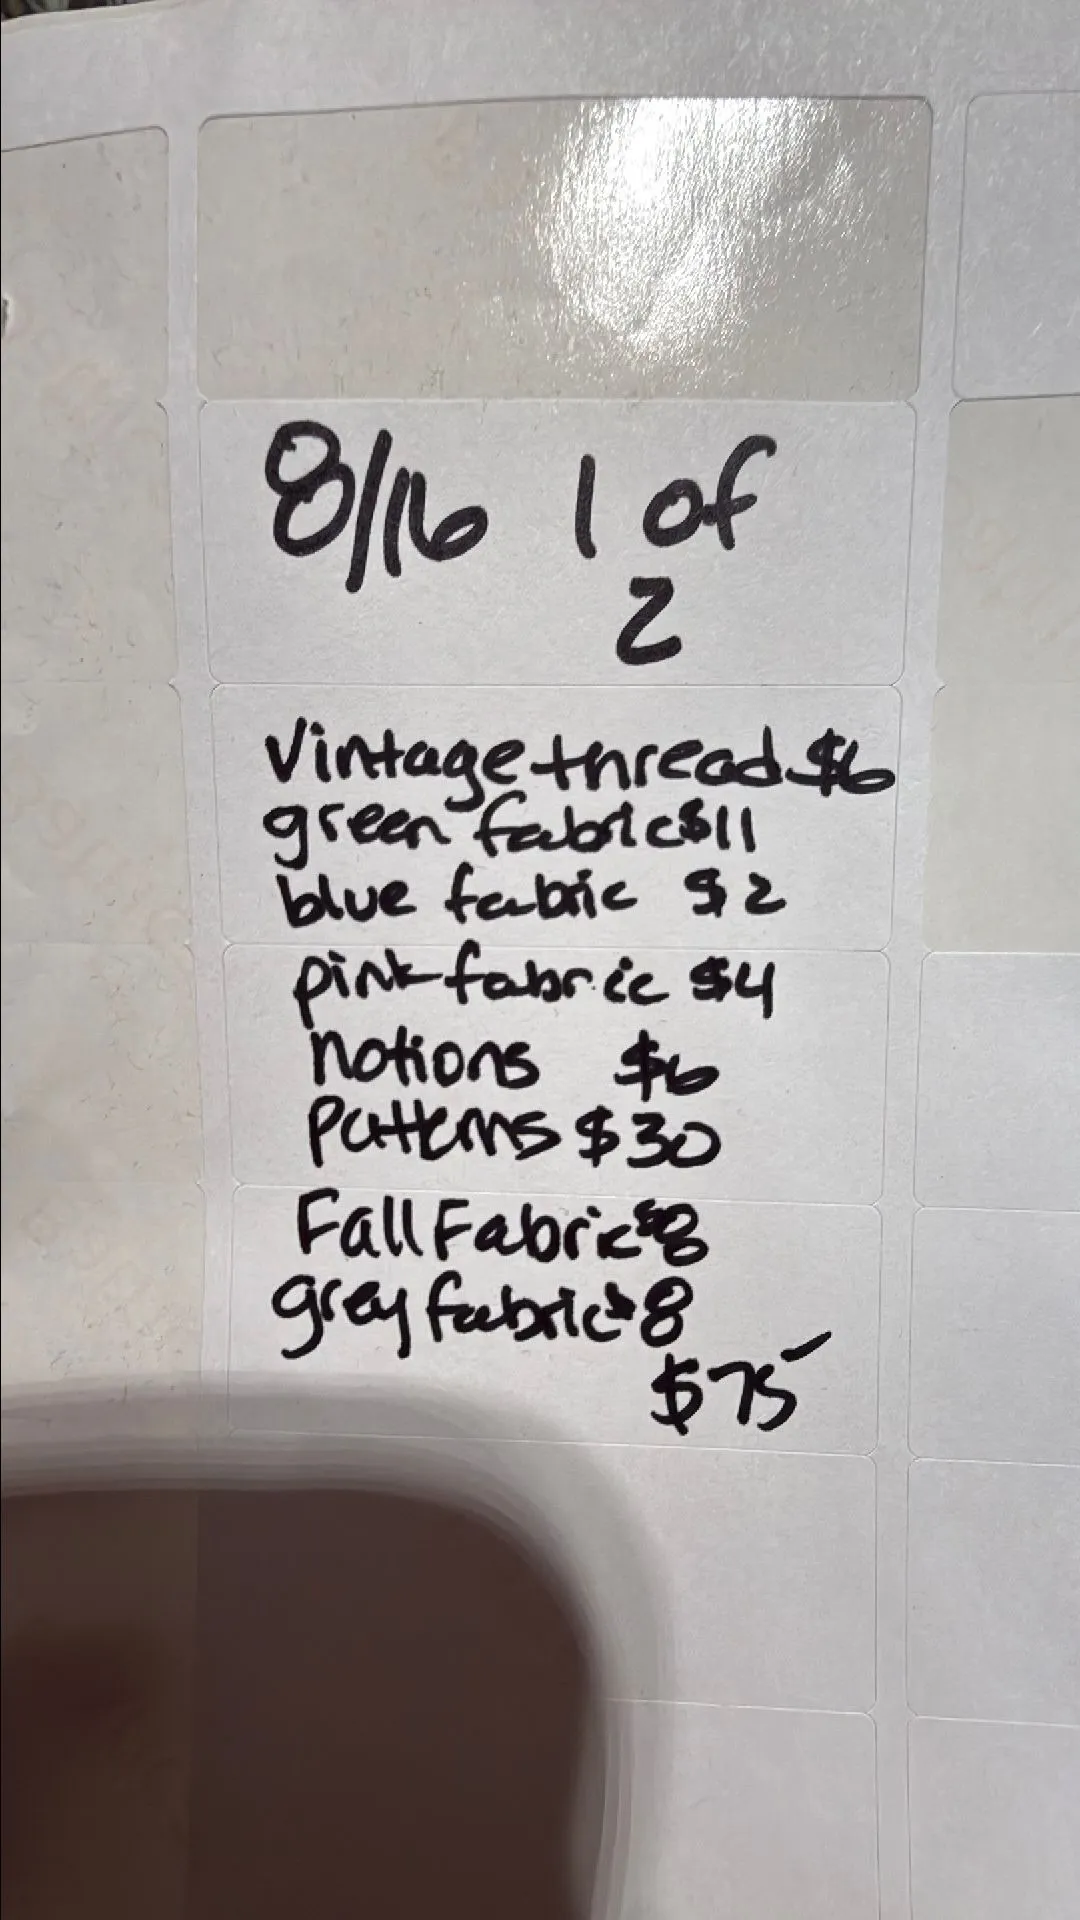 8/16 1 of
2
Vintage thread $6
green fabric $11
blue fabric $2
pink fabric $4
notions $6
Patterns $30
Fall Fabric $8
grey fabric $8
$75